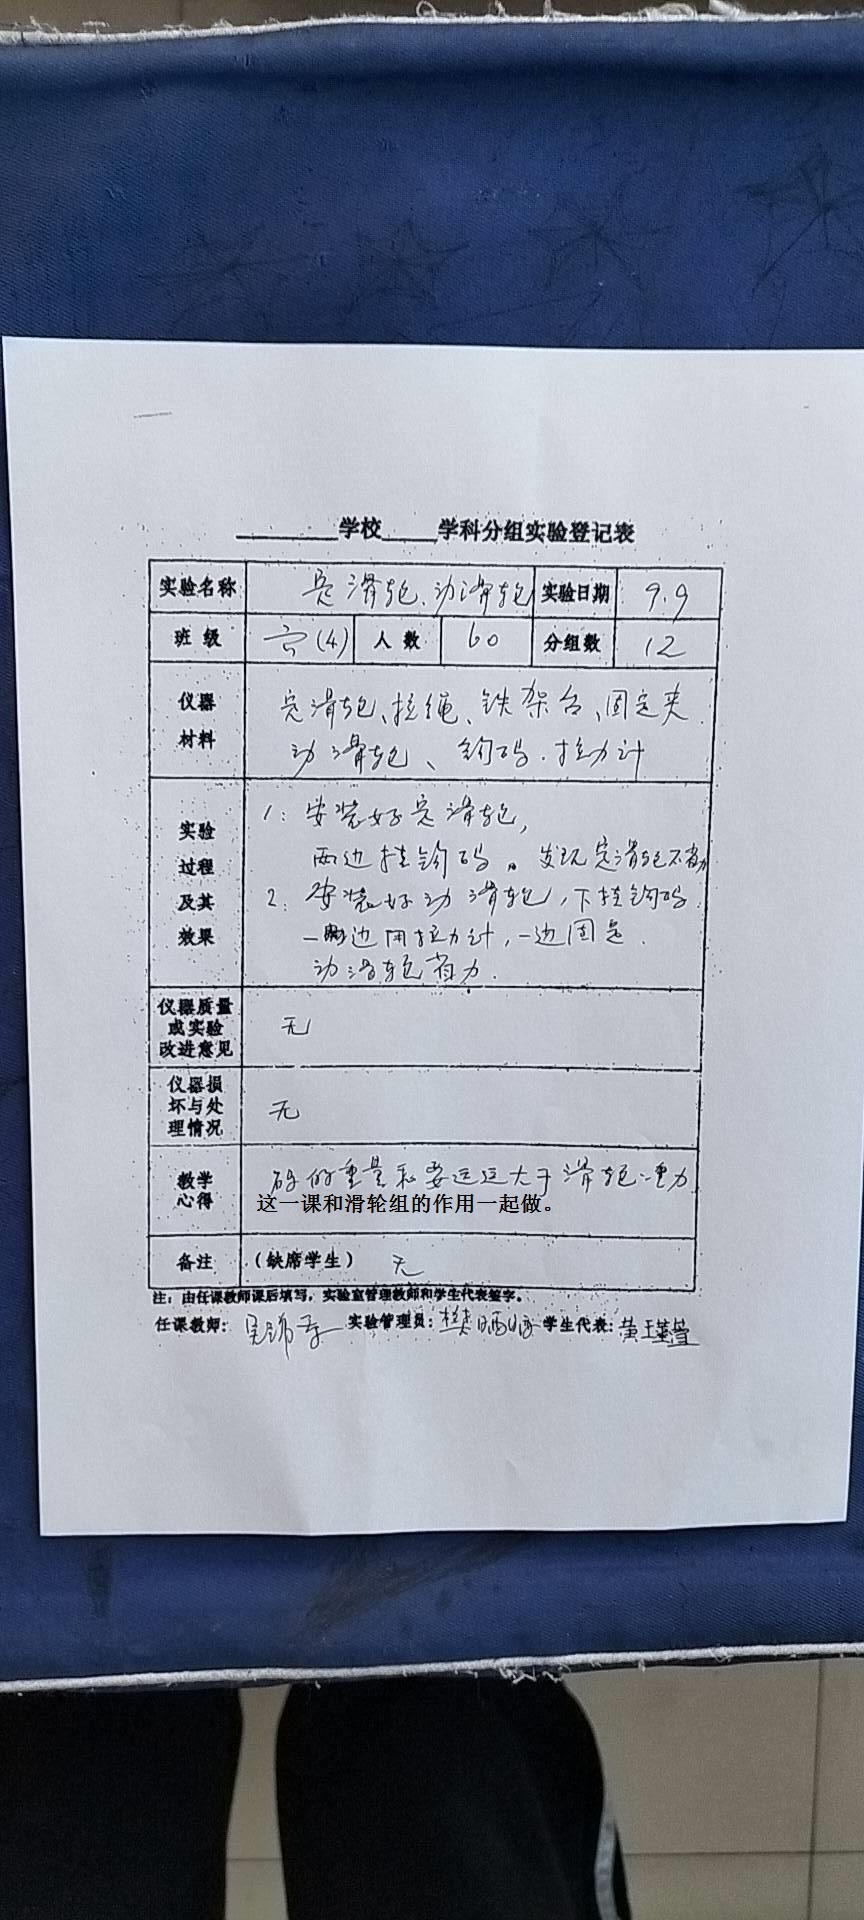 ________学校____学科分组实验登记表
实验名称 定滑轮、动滑轮 实验日期 9.9
班级 六(4) 人数 60 分组数 12
仪器材料 定滑轮、拉绳、铁架台、固定夹
动滑轮、钩码、拉力计
实验过程及其效果 1：安装好定滑轮，
两边挂钩码。发现定滑轮不省力
2：安装好动滑轮，下挂钩码
一边用拉力计，一边固定.
动滑轮省力.
仪器质量或实验改进意见 无
仪器损坏与处理情况 无
教学心得 码的重量和要远远大于滑轮重力
这一课和滑轮组的作用一起做。
备注 （缺席学生） 无
注：由任课教师课后填写，实验室管理教师和学生代表签字。
任课教师： 实验管理员： 学生代表：黄瑾萱